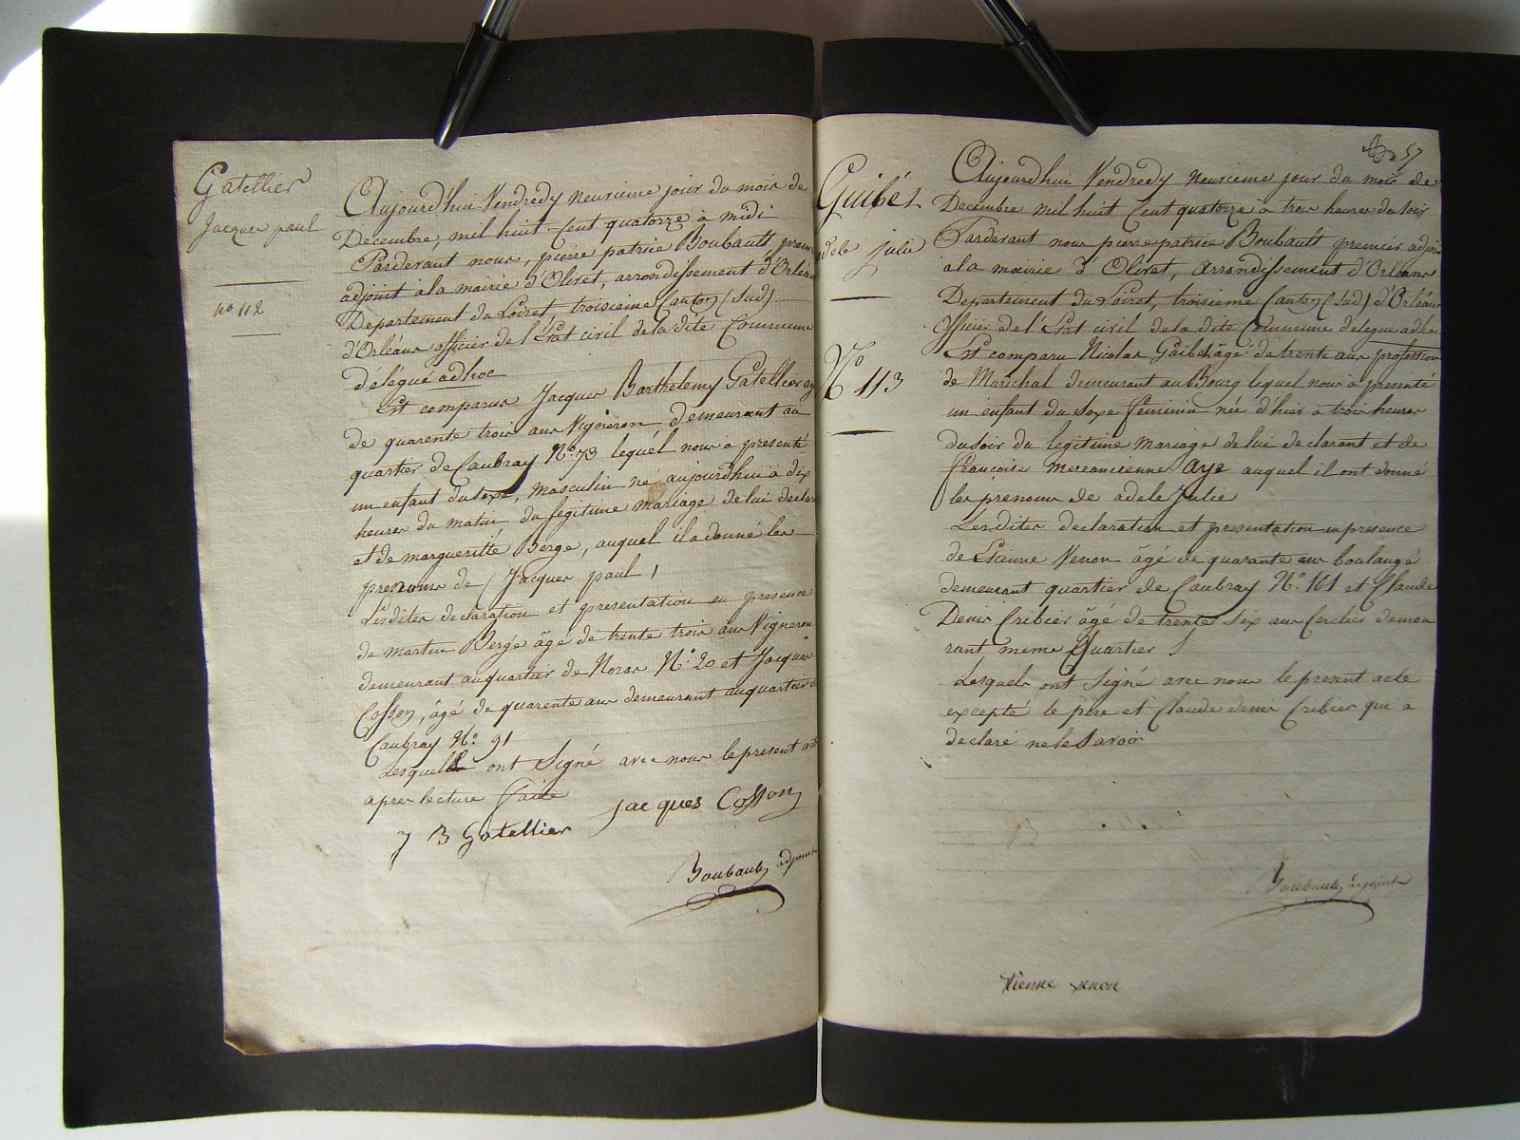 Gatellier
Jacques paul
no 112
Aujourd'hui Vendredy neuvieme jour du mois de
Decembre, mil huit Cent quatorze à midi
Pardevant nous, pierre patrice Boubault, premier
adjoint à la mairie d'Olivet, arrondissement d'Orléans
Departement du Loiret troisieme Canton (Sud)
d'Orléans officier de l'Etat civil de la dite Commune
délégué adhoc
Est comparu Jacques Barthelemy Gatellier
de quarente trois ans Vigneron demeurant au
quartier de Caubray No. 73 lequél nous a presenté
un enfant du sexe, masculin né aujourdhui à dix
heures du matin du legitime mariage de lui
et de margueritte Bergé, auquel il a donné les
prenoms de Jacques paul
Lesdites declaration et presentation en presence
de martin Bergé âgé de trente trois ans Vigneron
demeurant au quartier de No. 20 et Jacques
Cosson, âgé de quarente ans demeurant au quartier
Caubray No. 91
Lesquells ont Signé avec nous le present
apres lecture faite
J B Gatellier jacques Cosson
Boubault adjoint
57
Guibét
adele julie
No 113
Aujourd'hui Vendredy neuvieme jour du mois de
Decembre mil huit Cent quatorze à trois heures du soir
Pardevant nous pierre patrice Boubault premier
a la mairie d'Olivet, arrondissement d'Orléans
Departement du Loiret, troisieme Canton (Sud) d'Orléans
officier de l'Etat civil de la dite Commune délégué adhoc
Est comparu Nicolas Guibet âgé de trente ans profession
de Maréchal demeurant au Bourg lequel nous à presenté
un enfant du Sexe féminin née d'hier a trois heures
du soir du legitime mariage de lui declarant et de
françoise Aye auquel il ont donné
les prenoms de adele Julie
Lesdites declaration et presentation en presence
de Etienne Venon âgé de quarante ans boulangé
demeurant quartier de Caubray No. 101 et Claude
Denis Cribier âgé de trente Six ans Cerclier demeu
rant meme Quartier
Lesquels ont Signé avec nous le present acte
excepté le pere et Claude denis Cribier qui a
declaré ne le Savoir
Boubault adjoint
etienne venon